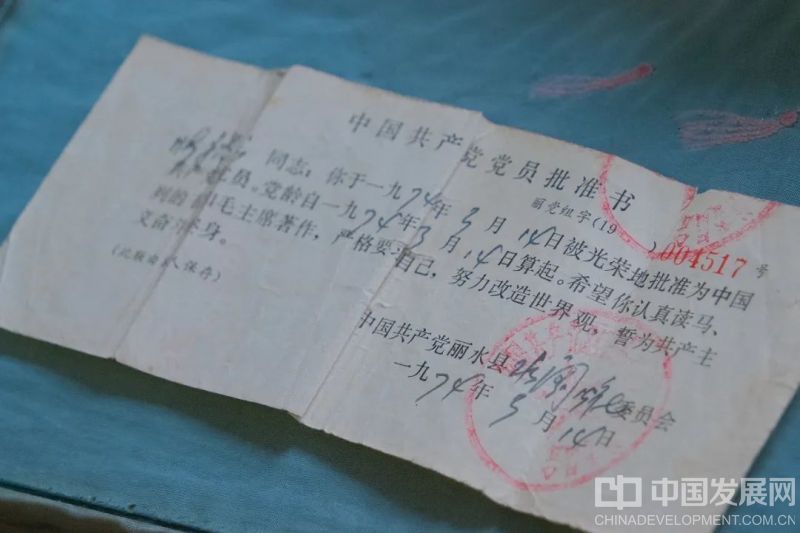 中国共产党党员批准书
丽党组字(19 )004517号
同志:你于一九74年3月14日被光荣地批准为中国
党员。党龄自一九74年3月14日算起。希望你认真读马、
列的 毛主席著作,严格要 自己,努力改造世界观,誓为共产主
义奋 终身。
(此联由本人保存)
中国共产党丽水县 委员会
一九74年3月14日
中国发展网
CHINADEVELOPMENT.COM.CN